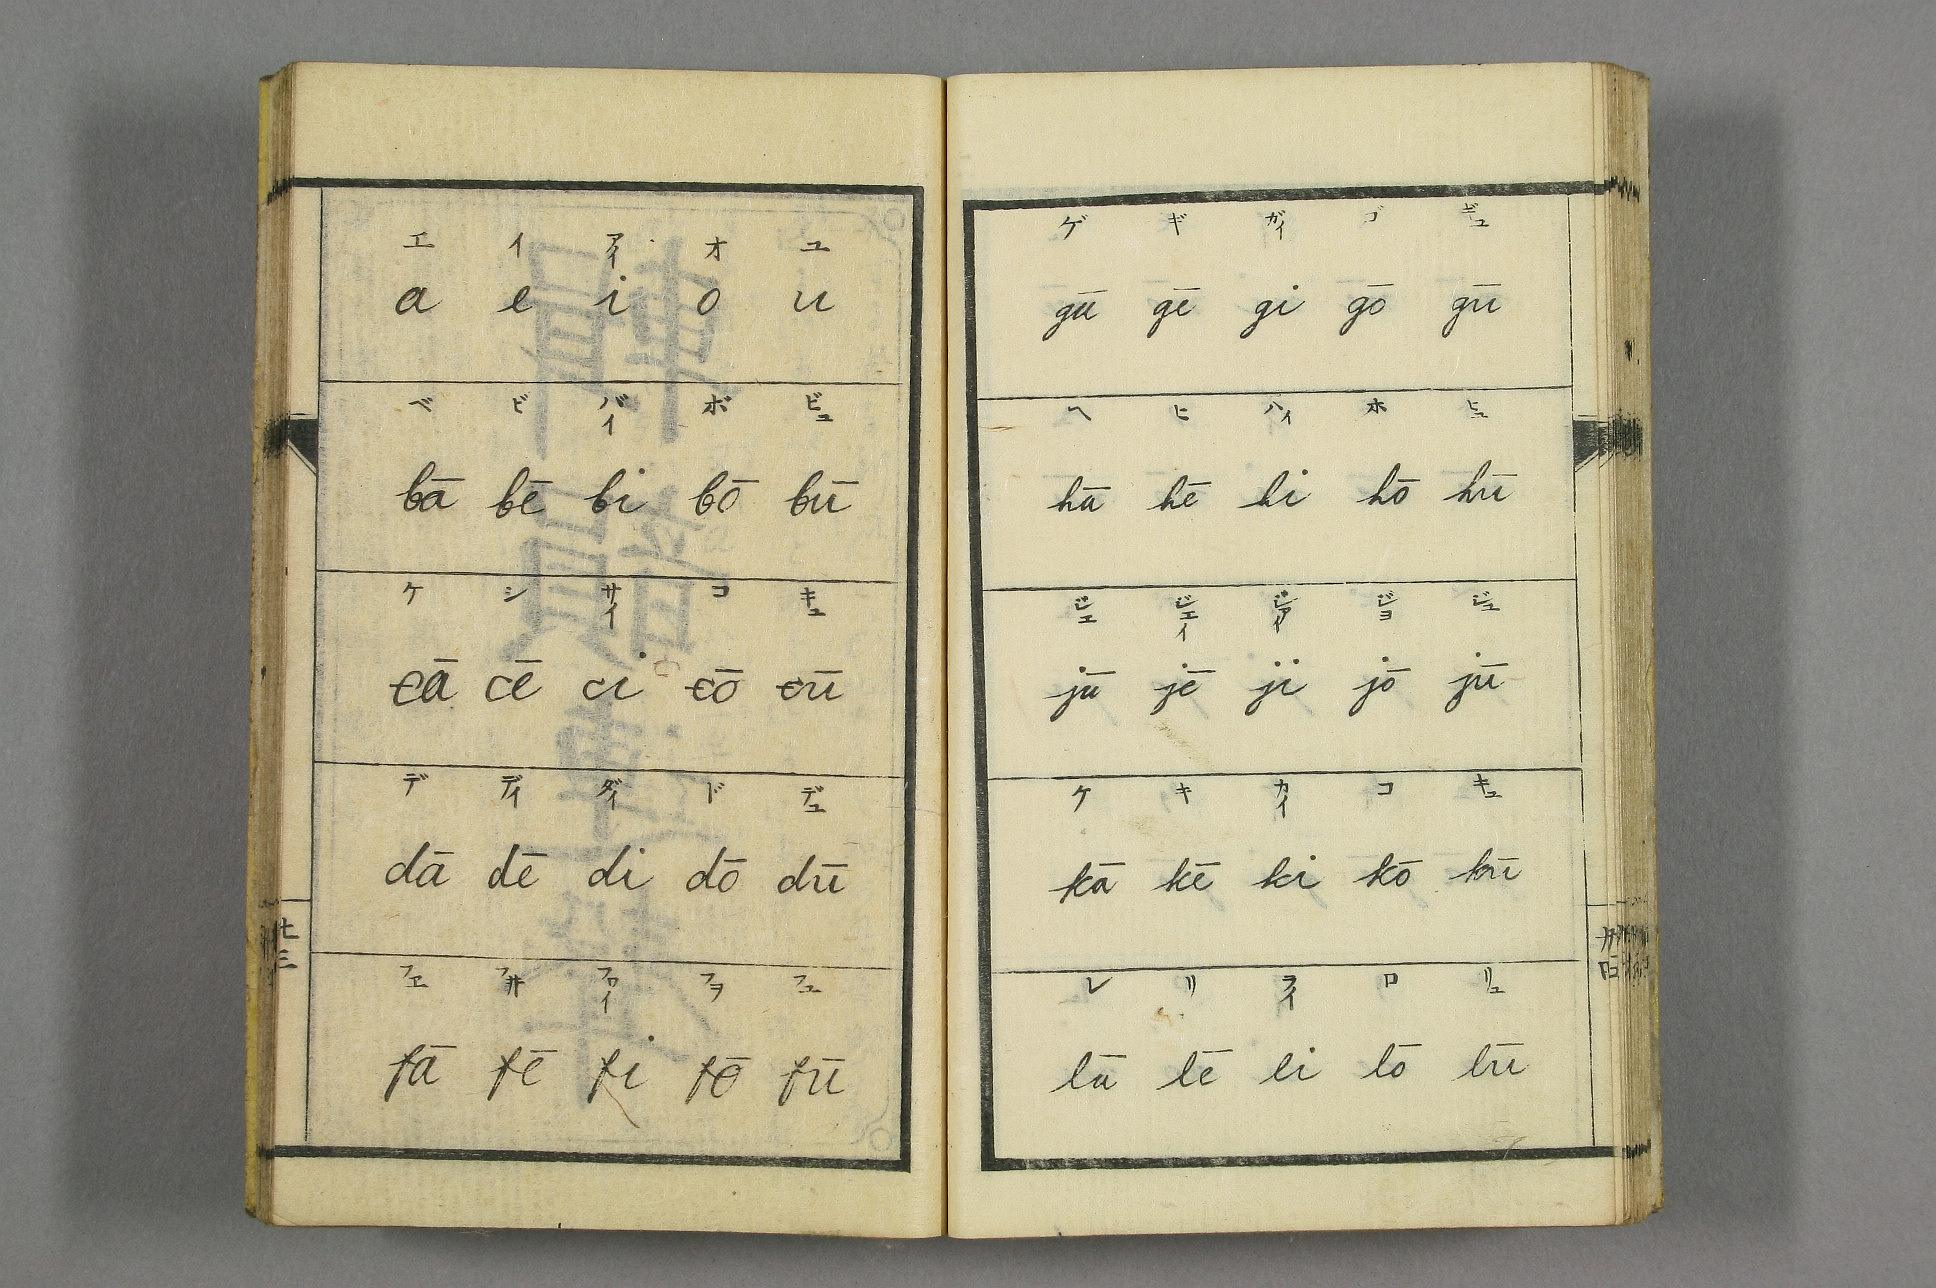 エ イ アイ オ ユ
a e i o u
ベ ビ バイ ボ ビュ
bā bē bi bō bū
ケ シ サイ コ キュ
cā cē ci cō cū
デ ディ ダイ ド デュ
dā dē di dō dū
フヱ フ井 フワイ フヲ フユ
fā fē fi fō fū
廿三
ゲ ギ ガイ ゴ ギュ
gā gē gi gō gū
ヘ ヒ ハイ ホ ヒュ
hā hē hi hō hū
ジエ ジエイ ジアイ ジヨ ジユ
jā jē ji jō jū
ケ キ カイ コ キュ
kā kē ki kō kū
レ リ ライ ロ リュ
lā lē li lō lū